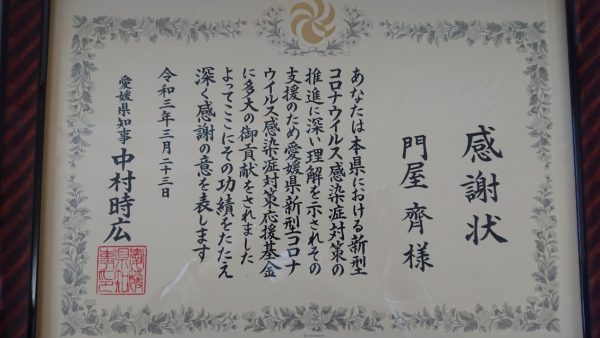 感謝状
門屋 齊様
あなたは本県における新型
コロナウイルス感染症対策の
推進に深い理解を示されその
支援のため愛媛県新型コロナ
ウイルス感染症対策応援基金
に多大の御貢献をされました
よってここにその功績をたたえ
深く感謝の意を表します
令和三年三月二十三日
愛媛県知事 中村時広
愛媛県知事印